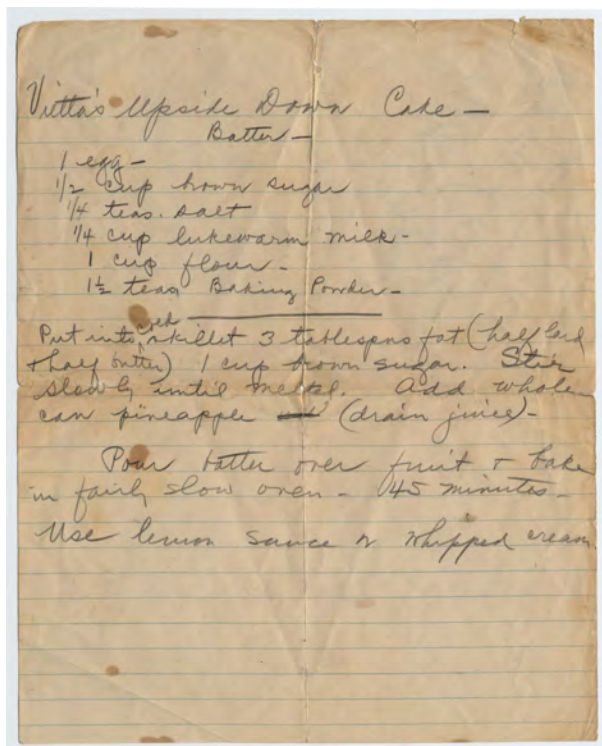 Vietta's Upside Down Cake —
Batter —
1 egg —
1/2 cup brown sugar
1/4 teas. salt
1/4 cup lukewarm milk -
1 cup flour -
1 1/2 teas Baking Powder -
Put into skillet 3 tablespns fat (half lard
+ half butter) 1 cup brown sugar. Stir
slowly until melted. Add whole
can pineapple (drain juice) -
Pour batter over fruit + bake
in fairly slow oven - 45 minutes -
Use lemon sauce or whipped cream